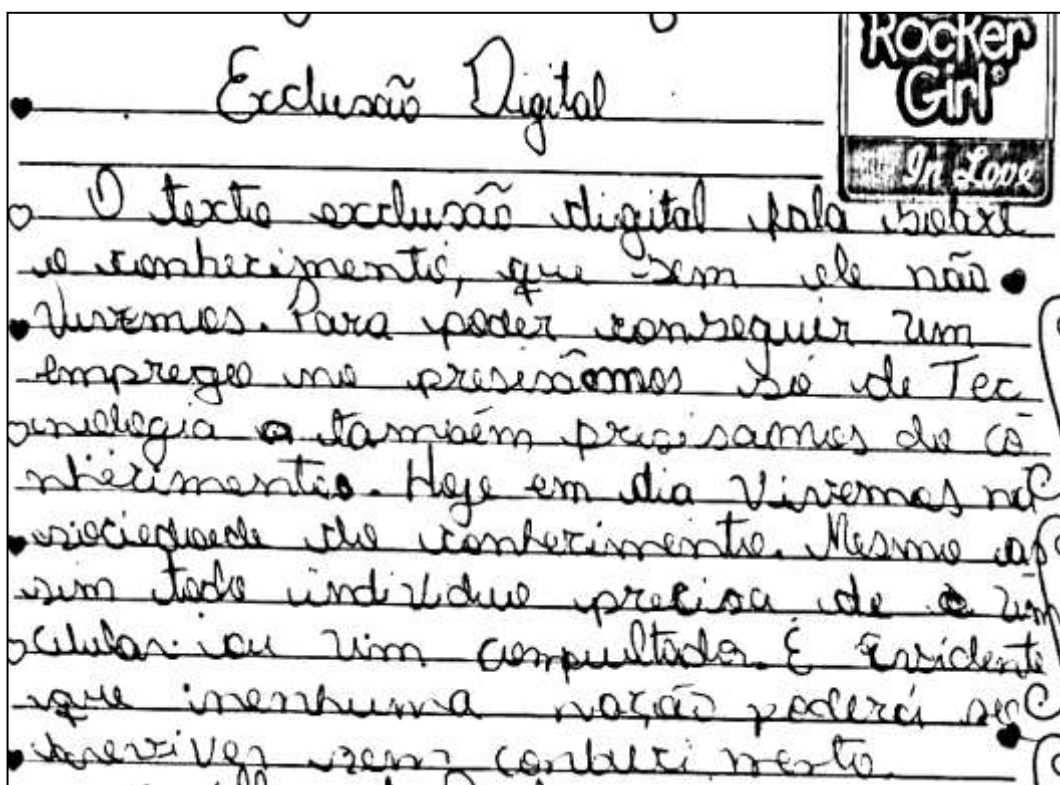 Rocker
Girl
In Love
Exclusão Digital
O texto exclusão digital fala sobre
o conhecimento, que sem ele não
vivemos. Para poder conseguir um
emprego no presisamos só de Tec
nologia e também precisamos do co
nhecimento. Hoje em dia Vivemos na
sociedade do conhecimento. Mesmo as
sim todo individuo precisa de um
celular ou um compultador. É Evidente
que nenhuma nação poderá so
breviver sem conhecimento.